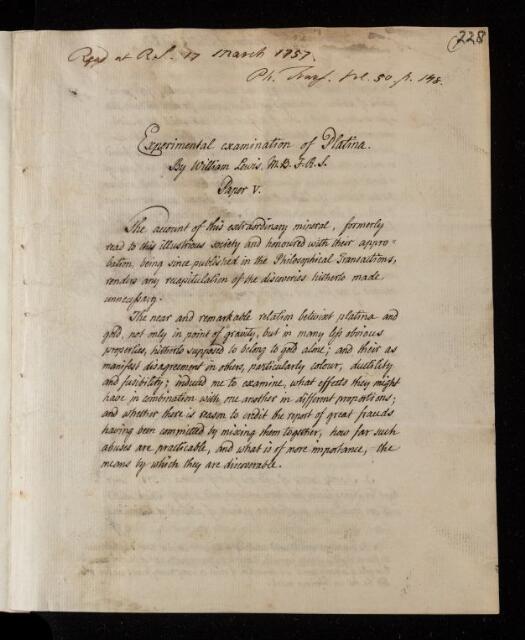 228
Read at R.S. 17 March 1757.
Ph. Trans. Vol. 50. p. 148.
Experimental examination of Platina.
By William Lewis, M.B. F.R.S.
Paper V.
The account of this extraordinary mineral, formerly
read to this illustrious society and honoured with their appro=
bation, being since published in the Philosophical Transactions,
renders any recapitulation of the discoveries hitherto made
unnecessary.
The near and remarkable relation betwixt platina and
gold, not only in point of gravity, but in many less obvious
properties, hitherto supposed to belong to gold alone; and their as
manifest disagreement in others, particularly colour, ductility
and fusibility; induced me to examine, what effects they might
have in combination with one another in different proportions;
and whether there is reason to credit the report of great frauds
having been committed by mixing them together, how far such
abuses are practicable, and what is of more importance, the
means by which they are discoverable.